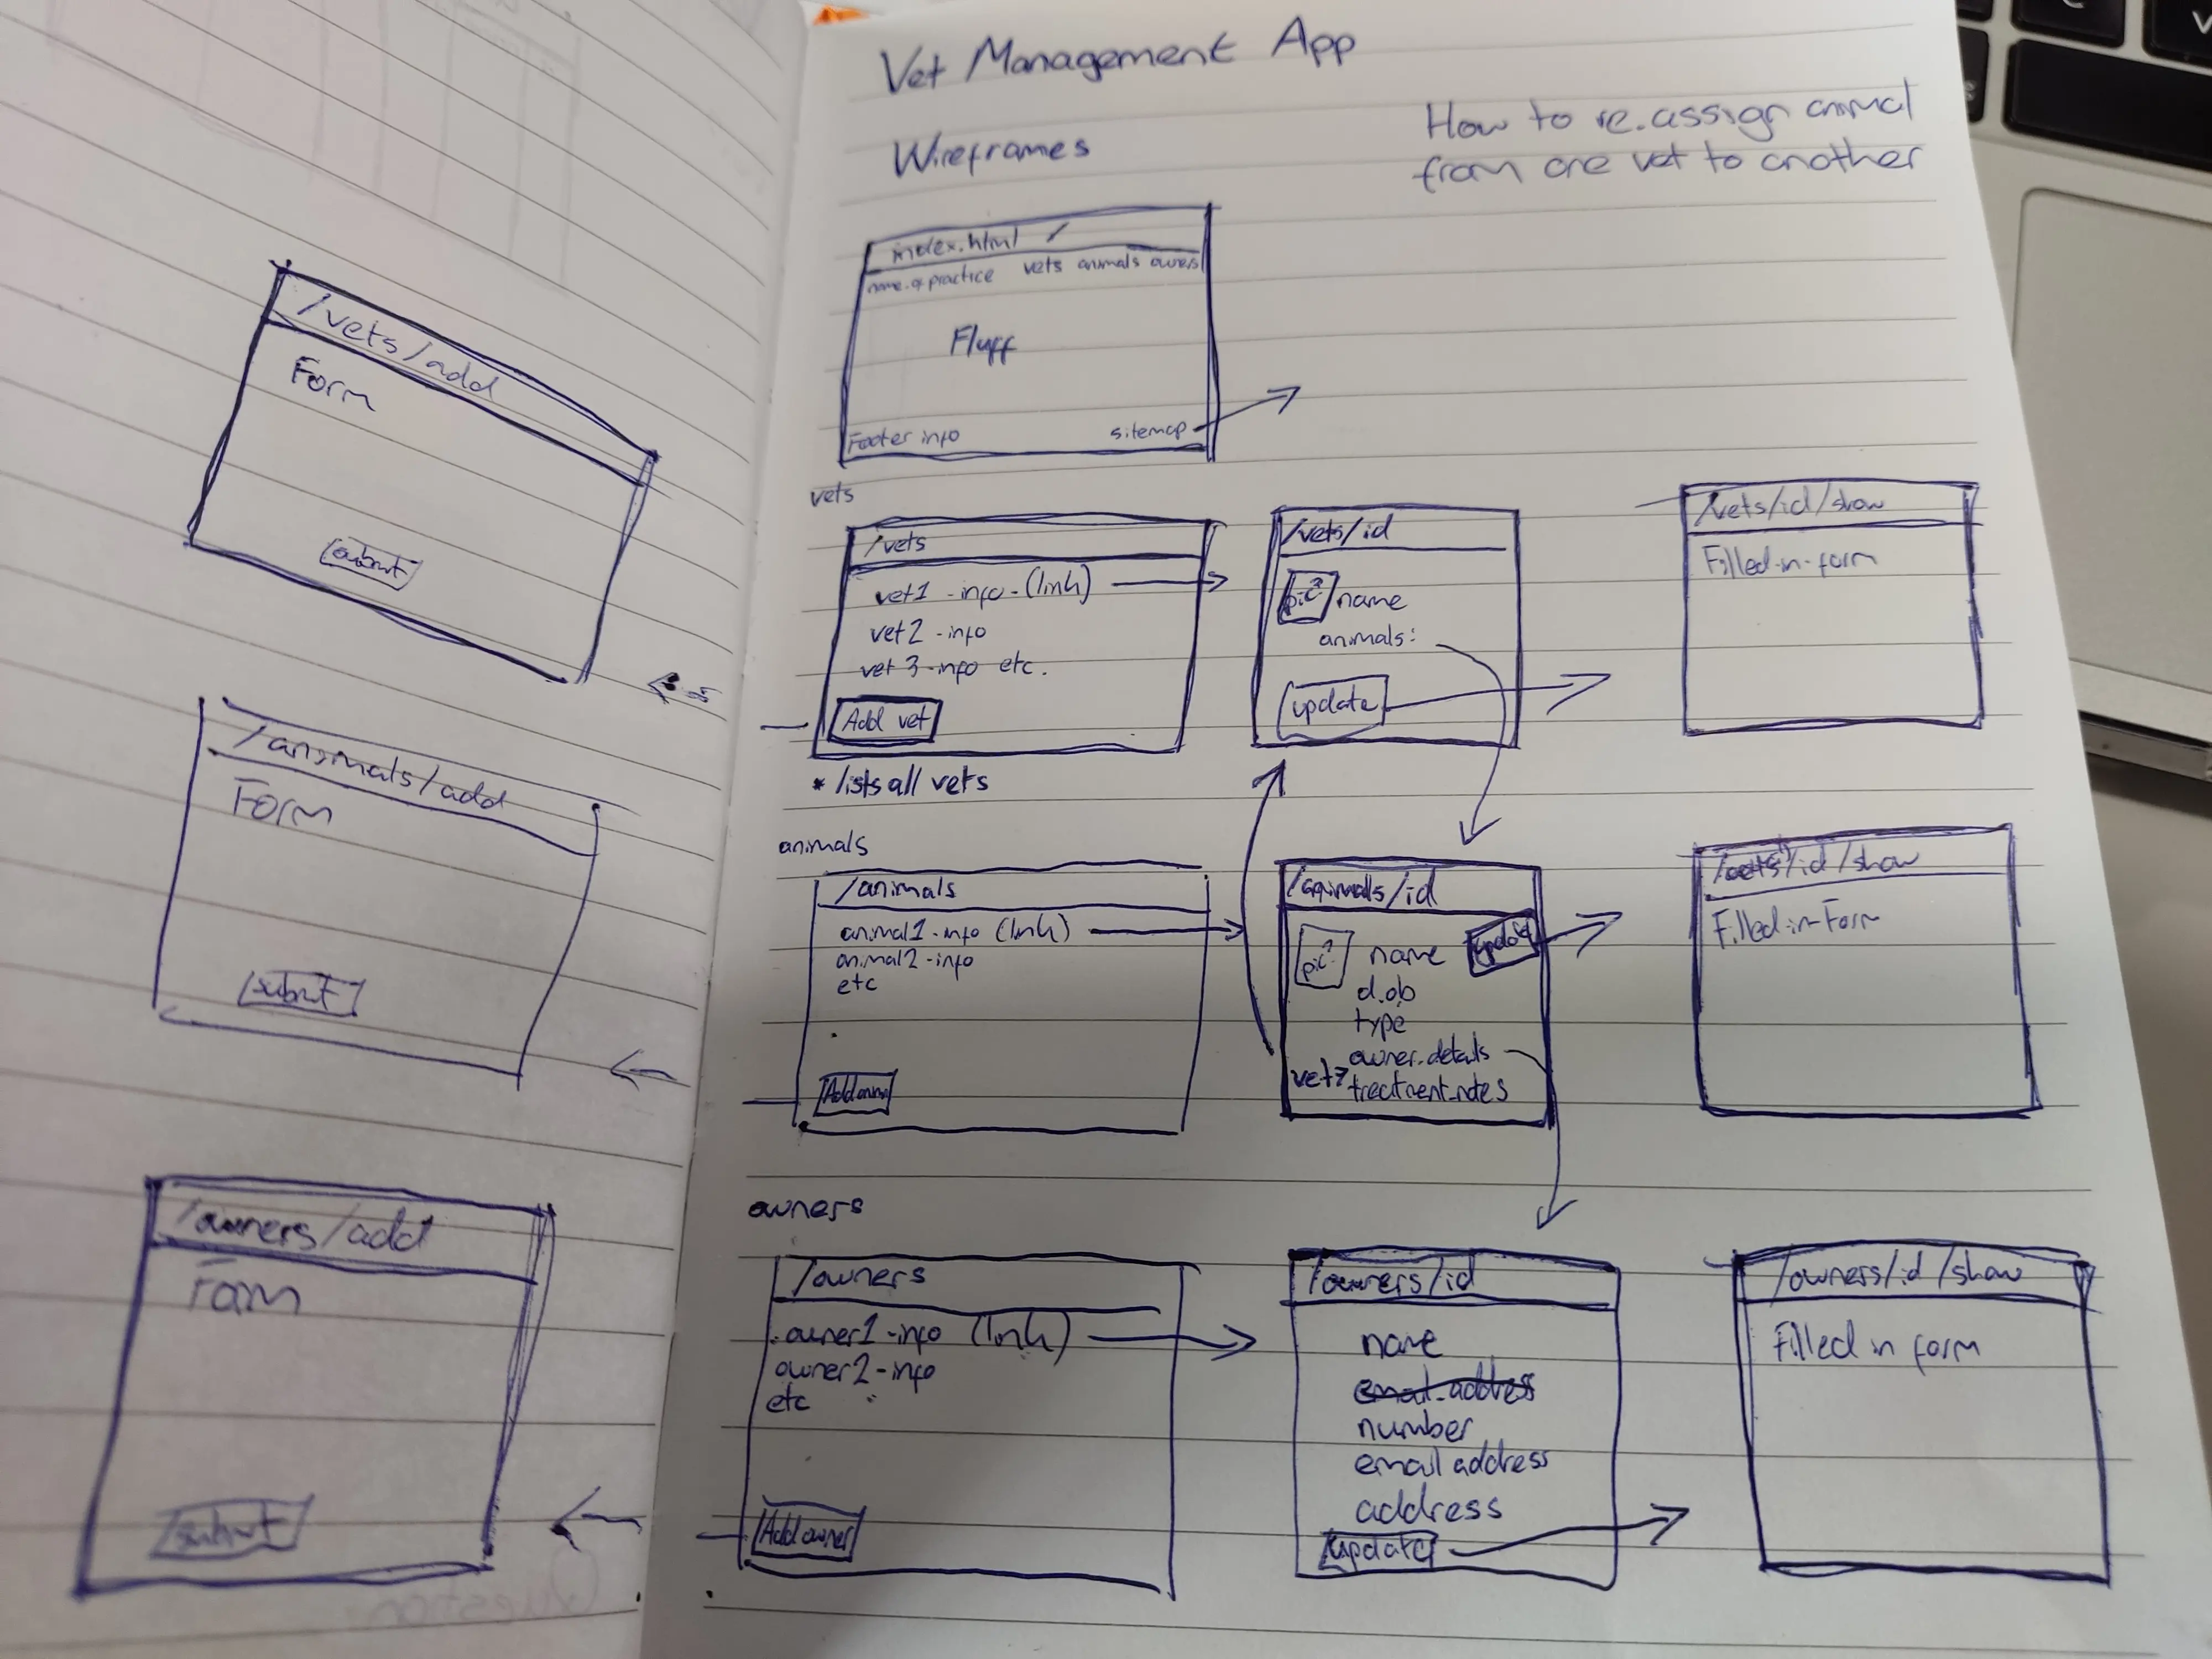 Vet Management App
Wireframes
How to re.assign animal
from one vet to another
index.html /
name.of practice vets animals owners
Fluff
Footer info sitemap
/vets/add
Form
submit
vets
/vets
vet1 -info-(link)
vet2 -info
vet 3-info etc.
Add vet
* lists all vets
/vets/id
pic? name
animals:
update
/vets/id/show
Filled-in-form
/animals/add
Form
submit
animals
/animals
animal1-info (link)
animal2-info
etc
/animals/id
pic? name update
d.ob
type
owner.details
vet? treatment.notes
/id/show
Filled-in-Form
/owners/add
Form
submit
owners
/owners
owner1-info (link)
owner2-info
etc
Add owner
/owners/id
name
email.address
number
email address
address
update
/owners/id/show
Filled in form